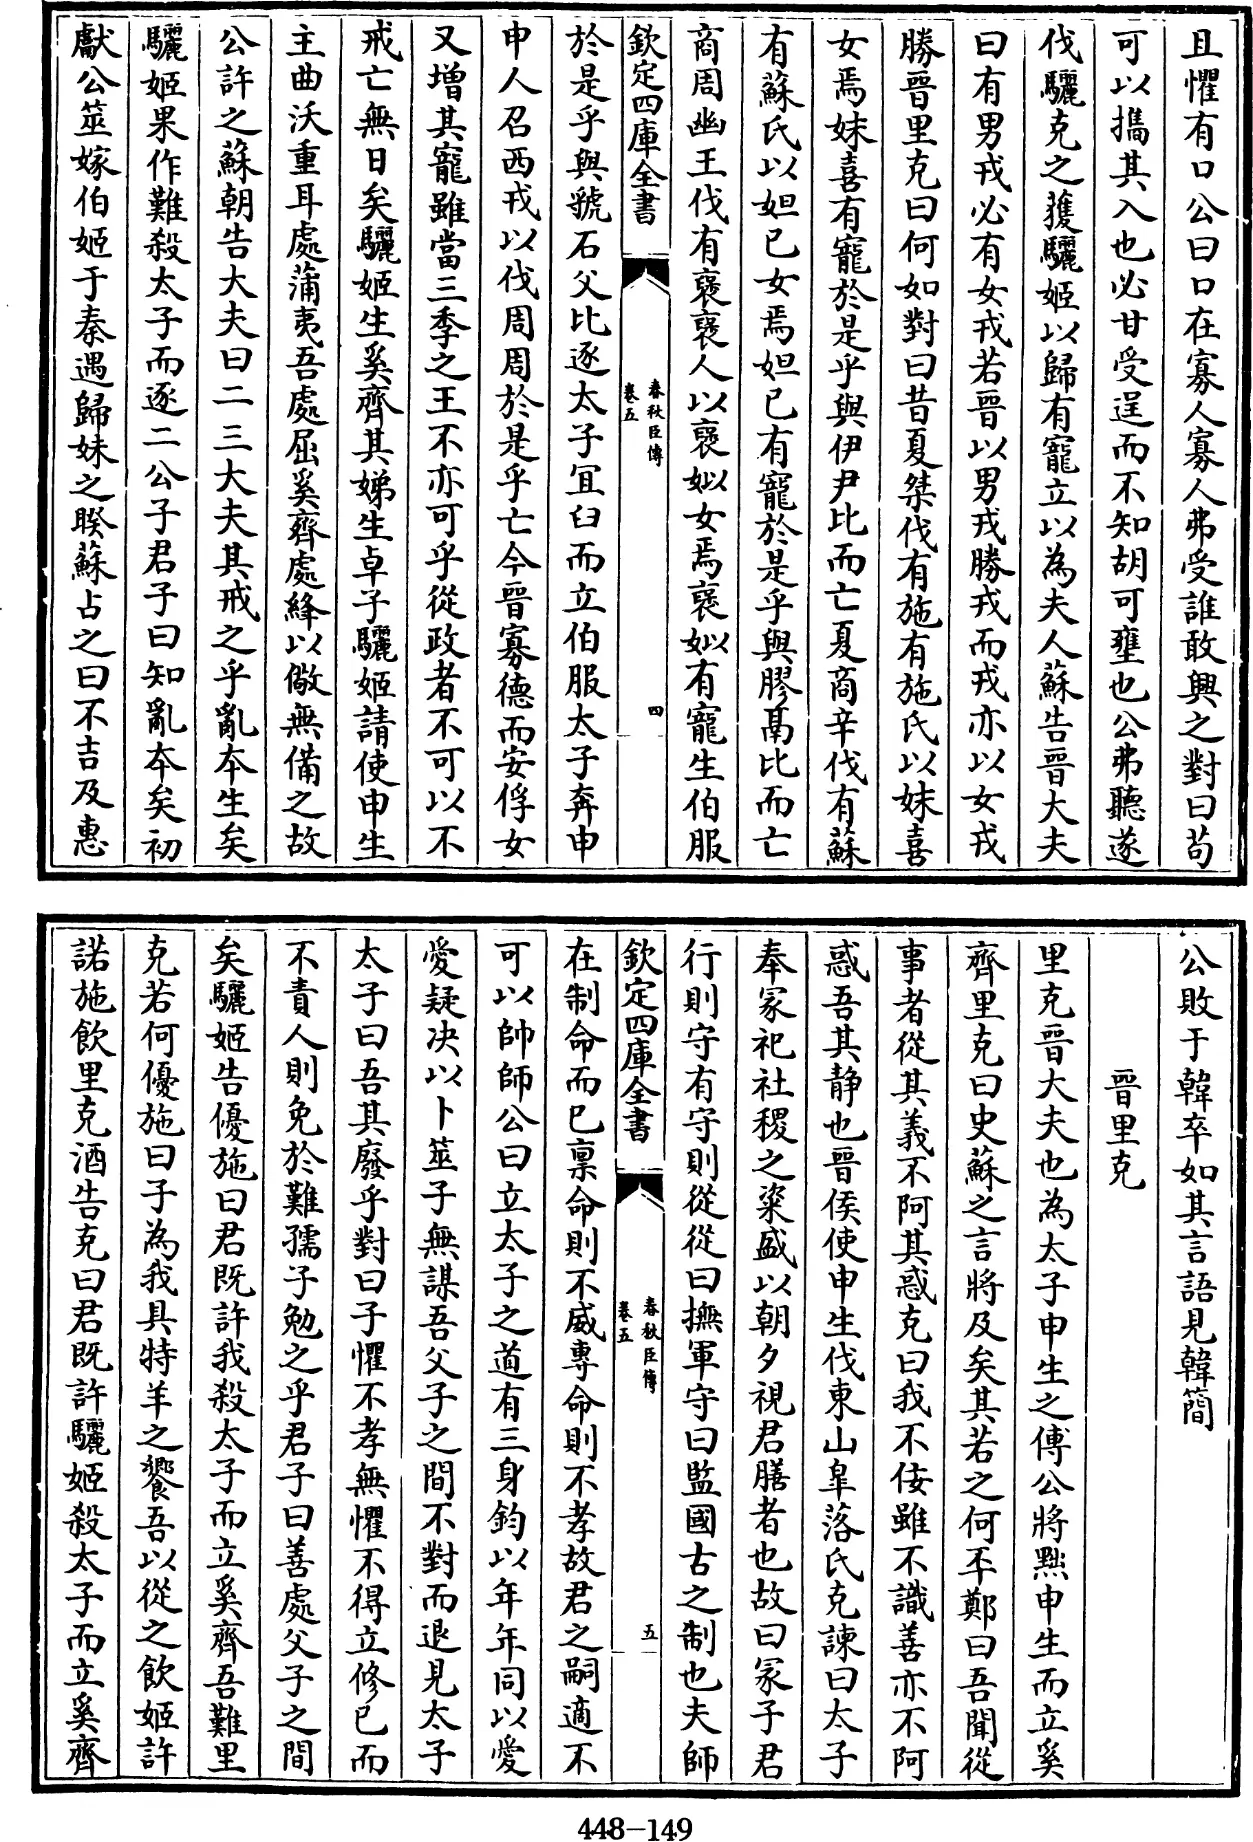 且懼有口公曰口在寡人寡人弗受誰敢興之對曰茍
可以攜其入也必甘受逞而不知胡可壅也公弗聽遂
伐驪克之獲驪姬以歸有寵立以為夫人蘇告晉大夫
曰有男戎必有女戎若晉以男戎勝戎而戎亦以女戎
勝晉里克曰何如對曰昔夏桀伐有施有施氏以妹喜
女焉妹喜有寵於是乎與伊尹比而亡夏商辛伐有蘇
有蘇氏以妲已女焉妲已有寵於是乎與膠鬲比而亡
商周幽王伐有襃襃人以襃姒女焉襃姒有寵生伯服
欽定四庫全書
春秋臣傳
卷五
四
於是乎與虢石父比逐太子宜臼而立伯服太子奔申
申人召西戎以伐周周於是乎亡今晉寡德而安俘女
又增其寵雖當三季之王不亦可乎從政者不可以不
戒亡無日矣驪姬生奚齊其娣生卓子驪姬請使申生
主曲沃重耳處蒲夷吾處屈奚齊處絳以儆無備之故
公許之蘇朝告大夫曰二三大夫其戒之乎亂本生矣
驪姬果作難殺太子而逐二公子君子曰知亂本矣初
獻公筮嫁伯姬于秦遇歸妹之睽蘇占之曰不吉及惠
公敗于韓卒如其言語見韓簡
晉里克
里克晉大夫也為太子申生之傅公將黜申生而立奚
齊里克曰史蘇之言將及矣其若之何丕鄭曰吾聞從
事者從其義不阿其惑克曰我不佞雖不識善亦不阿
惑吾其靜也晉侯使申生伐東山臯落氏克諫曰太子
奉冢祀社稷之粢盛以朝夕視君膳者也故曰冢子君
行則守有守則從從曰撫軍守曰監國古之制也夫師
欽定四庫全書
春秋臣傳
卷五
五
在制命而已稟命則不威專命則不孝故君之嗣適不
可以帥師公曰立太子之道有三身鈞以年年同以愛
愛疑決以卜筮子無謀吾父子之間不對而退見太子
太子曰吾其廢乎對曰子懼不孝無懼不得立修已而
不責人則免於難孺子勉之乎君子曰善處父子之間
矣驪姬告優施曰君既許我殺太子而立奚齊吾難里
克若何優施曰子為我具特羊之饗吾以從之飲姬許
諾施飲里克酒告克曰君既許驪姬殺太子而立奚齊
448-149